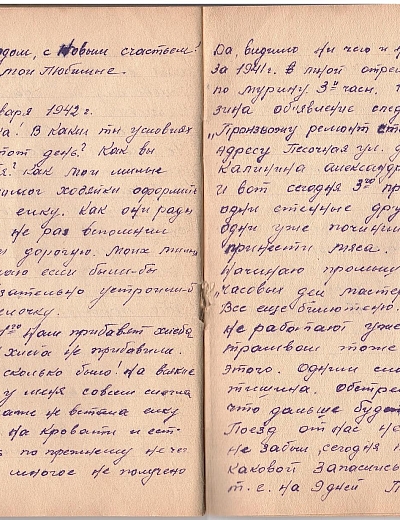 одом, с Новым счастьем!
мои Любимые.
варя 1942 г.
на! В каких ты условиях
этот день? Как вы
? Как мои милые
помог хозяйки оформить
елку. Как они рады
не раз вспомнили
дорогую. Моих милых
если были-бы
зательно устроили-б
елочку.
1го нам прибавят хлеба
хлеба не прибавили.
сколько было! На всякие
у меня совсем
даже не встала
на кровати и ест
по прежнему нечего
многое не получено
Да, видимо ни чего и н
За 1941г. В мой отре
по
объявление след
„Произвожу ремонт сте
адресу Песочная ул. д
Калинина Александр
и вот сегодня 3го пр
одни стенные дру
одни уже починил
принести мяса.
Начинаю промыш
"часовых дел мастер
Все еще бюллетеню.
не работают уже
трамваи тоже
этого. Одним сло
тишина. Обстрел
что дальше будет
Поезд от нас на
не забыл, сегодня п
каковой запасись
т.е. на 9 дней